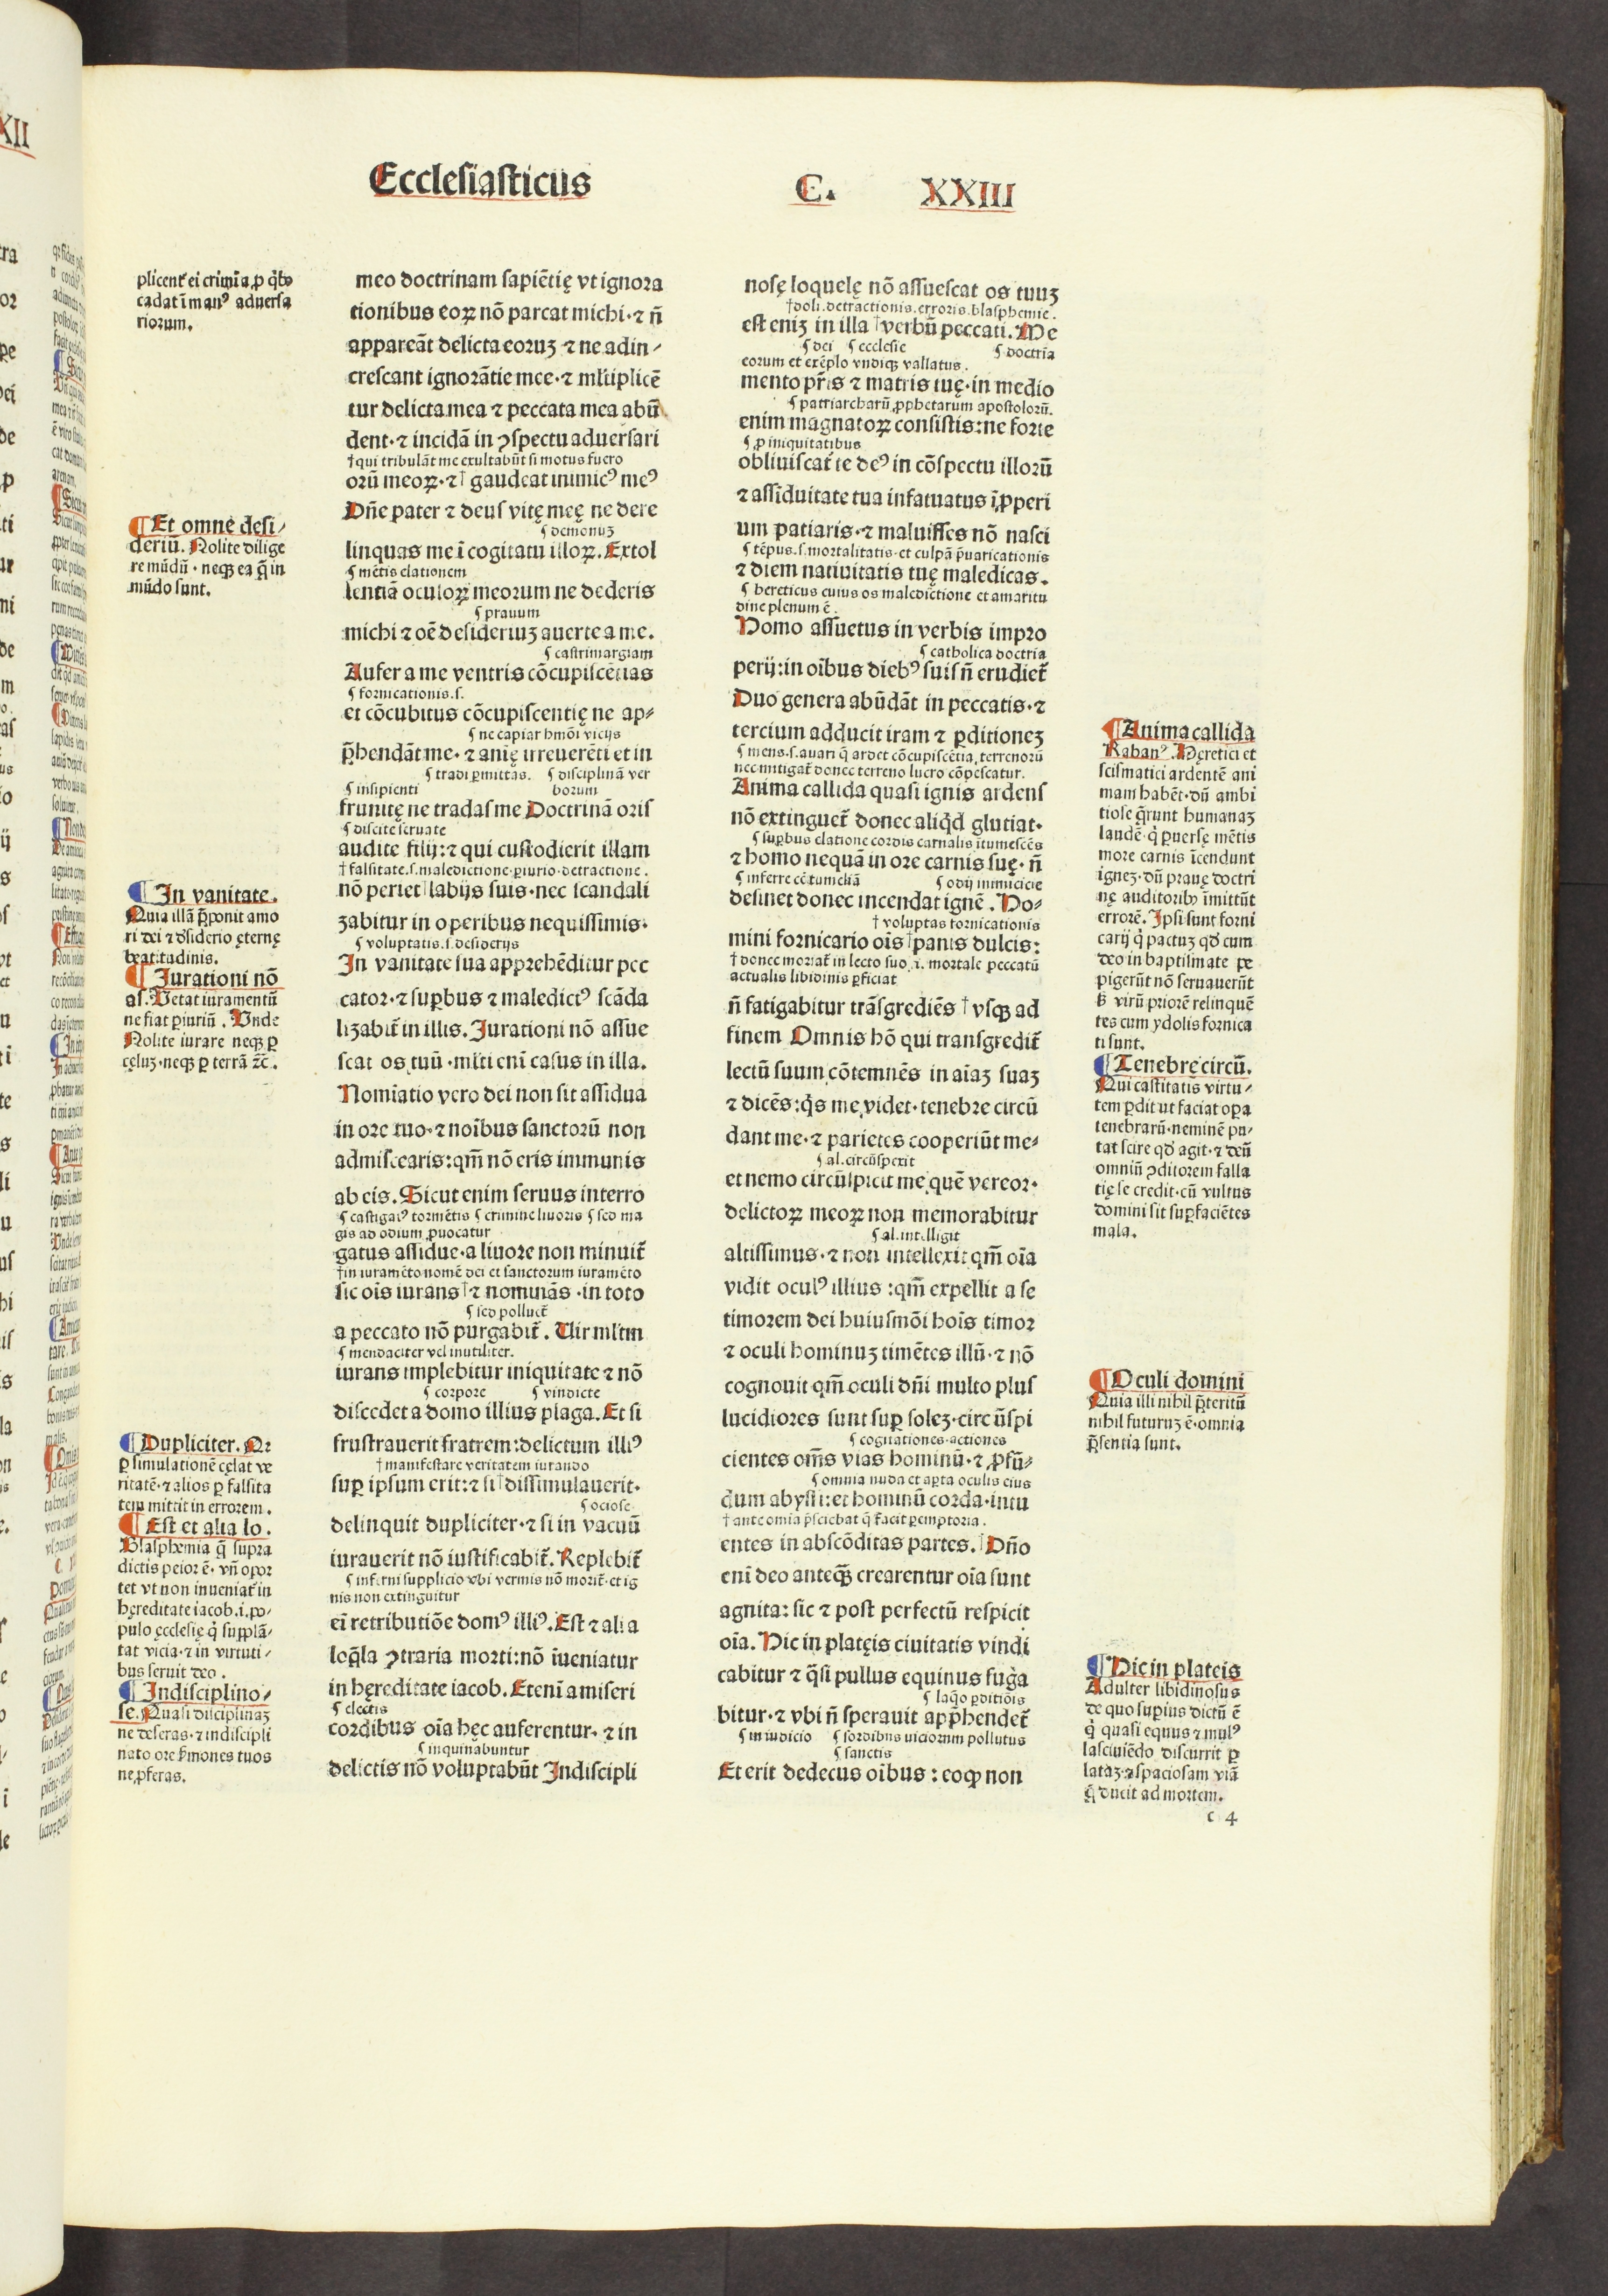 Ecclesiasticus C. XXIII
plicent᷑ ei crimīa ꝓ q̇bꝰ
cadat ī manꝰ aduersa
riorum.
¶Et omne desi/
deriū. Nolite dilige
re mūdū · neqꝫ ea q̄ in
mūdo sunt.
¶In vanitate.
Quia illā p̄ponit amo
ri dei ⁊ dsiderio ęternę
beatitudinis.
¶Iurationi nō
as. Vetat iuramentū
ne fiat ꝑiuriū. Unde
Nolite iurare neqꝫ ꝑ
cęluꝫ · neqꝫ ꝑ terrā ⁊c̄.
¶Dupliciter. Qr
ꝑ simulationē cęlat ve
ritatē · ⁊ alios ꝑ falsita
tem mittit in errorem.
¶Est et alia lo.
Blasphemia q̄ supra
dictis peior ē · vn̄ opor
tet vt non inueniat᷑ in
hęreditate iacob .i. po/
pulo ęcclesię q̇ supplā/
tat vicia · ⁊ in virtuti/
bus seruit deo.
¶Indisciplino/
se. Quasi disciplinaꝫ
ne deseras · ⁊ indiscipli
nato ore s̓mones tuos
ne ꝓferas.
meo doctrinam sapiētię vt ignora
tionibus eoꝝ nō parcat michi · ⁊ n̄
appareāt delicta eoruꝫ ⁊ ne adin/
crescant ignorātie mee · ⁊ ml̓tiplicē
tur delicta mea ⁊ peccata mea abū
dent · ⁊ incidā in ꝯspectu aduersari
†qui tribulāt me exultabūt si motus fuero
orū meoꝝ · ⁊† gaudeat inimicꝰ meꝰ
Dn̄e pater ⁊ deus vitę meę ne dere
¶demonuꝫ
linquas me ī cogitatu illoꝝ. Extol
¶mētis elationem
lentiā oculoꝝ meorum ne dederis
¶prauum
michi ⁊ oē desideriuꝫ auerte a me.
¶castrimargiam
Aufer a me ventris cōcupiscētias
¶fornicationis .s.
et cōcubitus cōcupiscentię ne ap/
¶ne capiar hmōi vicijs
p̄hendāt me · ⁊ anię irreuerēti et in
¶tradi ꝑmittas. ¶disciplinā ver
¶insipienti borum
frunitę ne tradas me Doctrinā oris
¶discite seruate
audite filij : ⁊ qui custodierit illam
†falsitate .s. maledictione · ꝑiurio · detractione.
nō periet †labijs suis · nec scandali
zabitur in operibus nequissimis.
¶voluptatis .s. desiderijs
In vanitate sua apprehēditur pec
cator · ⁊ suꝑbus ⁊ maledictꝰ scāda
lizabit᷑ in illis. Iurationi nō assue
scat os tuū · ml̓ti enī casus in illa.
Nomīatio vero dei non sit assidua
in ore tuo · ⁊ noībus sanctorū non
admiscearis : qm̄ nō eris immunis
ab eis. Sicut enim seruus interro
¶castigatꝰ tormētis ¶crimine liuoris ¶sed ma
gis ad odium ꝓuocatur
gatus assidue · a liuore non minuit᷑
†in iuramēto nomē dei et sanctorum iuramēto
sic oīs iurans † ⁊ nominās · in toto
¶sed polluet᷑
a peccato nō purgabit᷑. Uir ml̓tm
¶mendaciter vel inutiliter.
iurans implebitur iniquitate ⁊ nō
¶corpore ¶vindicte
discedet a domo illius plaga. Et si
frustrauerit fratrem : delictum illiꝰ
†manifestare veritatem iurando
suꝑ ipsum erit : ⁊ si †dissimulauerit ·
¶ociose
delinquit dupliciter · ⁊ si in vacuū
iurauerit nō iustificabit᷑. Replebit᷑
¶inferni supplicio vbi vermis nō morit᷑ · et ig
nis non extinguitur
eī retributiōe domꝰ illiꝰ. Est ⁊ alia
loq̄la ꝯtraria morti : nō īueniatur
in hęreditate iacob. Etenī a miseri
¶electis
cordibus oīa hęc auferentur · ⁊ in
¶inquinabuntur
delictis nō voluptabūt Indiscipli
nosę loquelę nō assuescat os tuuꝫ
†doli . detractionis . erroris . blasphemie.
est eniꝫ in illa †verbū peccati. Me
¶dei ¶ecclesie ¶doctrīa
eorum et exēplo vndiqꝫ vallatus.
mento pr̄is ⁊ matris tuę · in medio
¶patriarcharū ꝓphetarum apostolorū.
enim magnatoꝝ consistis : ne forte
¶ꝓ iniquitatibus
obliuiscat᷑ te deꝰ in cōspectu illorū
⁊ assiduitate tua infatuatus īꝓperi
um patiaris · ⁊ maluisses nō nasci
¶tēpus .s. mortalitatis · et culpā p̄uaricationis
⁊ diem natiuitatis tuę maledicas.
¶hereticus cuius os maledictione et amaritu
dine plenum ē.
Homo assuetus in verbis impro
¶catholica doctria
perij : in oībus diebꝰ suis n̄ erudiet᷑
Duo genera abūdāt in peccatis · ⁊
tercium adducit iram ⁊ ꝑditioneꝫ
¶mens .s. auari q̄ ardet cōcupiscētia terrenorū
nec mitigat᷑ donec terreno lucro cōpescatur.
Anima callida quasi ignis ardens
nō extinguet᷑ donec aliq̇d glutiat.
¶suꝑbus elatione cordis carnalis ītumescēs
⁊ homo nequā in ore carnis suę · n̄
¶inferre cōtumeliā ¶odij inimicicie
desinet donec incendat ignē. Ho/
†voluptas fornicationis
mini fornicario oīs †panis dulcis :
†donec moriat᷑ in lecto suo .i. mortale peccatū
actualis libidinis ꝑficiat
n̄ fatigabitur trāsgrediēs † vsqꝫ ad
finem Omnis hō qui transgredit᷑
lectū suum cōtemnēs in aīaꝫ suaꝫ
⁊ dicēs : q̇s me videt · tenebre circū
dant me · ⁊ parietes cooperiūt me/
¶al. circūspexit
et nemo circūspicit me quē vereor ·
delictoꝝ meoꝝ non memorabitur
¶al. intelligit
altissimus · ⁊ non intellexit qm̄ oīa
vidit oculꝰ illius : qm̄ expellit a se
timorem dei huiusmōi hoīs timor
⁊ oculi hominuꝫ timētes illū · ⁊ nō
cognouit qm̄ oculi dn̄i multo plus
lucidiores sunt suꝑ soleꝫ · circūspi
¶cognationes · actiones
cientes om̄s vias hominū · ⁊ ꝓfū/
¶omnia nuda et aꝑta oculis eius
dum abyssi : et hominū corda · intu
†ante omīa p̄sciebat q̄ facit ꝑemptoria.
entes in abscōditas partes. †Dn̄o
enī deo anteq̄ꝫ crearentur oīa sunt
agnita : sic ⁊ post perfectū respicit
oīa. Hic in platęis ciuitatis vindi
cabitur ⁊ q̄si pullus equinus fuga
¶laq̇o ꝑditiōis
bitur · ⁊ vbi n̄ sperauit app̄hendet᷑
¶in iudicio ¶sordibus uiciorum pollutus
¶sanctis
Et erit dedecus oībus : eoꝙ non
¶Anima callida
Rabanꝰ. Hęretici et
scismatici ardentē ani
mam habēt · dū ambi
tiose q̄runt humanaꝫ
laudē · q̇ ꝑuersę mētis
more carnis īcendunt
igneꝫ · dū prauę doctri
nę auditoribꝰ īmittūt
errorē. Ipsi sunt forni
carij q̇ pactuꝫ qd̓ cum
deo in baptismate pe
pigerūt nō seruauerūt
s̓ virū priorē relinquē
tes cum ydolis fornica
ti sunt.
¶Tenebrę circū.
Qui castitatis virtu/
tem ꝑdit ut faciat oꝑa
tenebrarū · neminē pu/
tat scire qd̓ agit · ⁊ deū
omniū ꝯditorem falla
tię se credit · cū vultus
domini sit suꝑ faciētes
mala.
¶Oculi domini
Quia illi nihil p̄teritū
nihil futuruꝫ ē · omnia
p̄sentia sunt.
¶Hic in plateis
Adulter libidinosus
de quo suꝑius dictū ē
q̇ quasi equus ⁊ mulꝰ
lasciuiēdo discurrit ꝑ
lataꝫ ⁊ spaciosam viā
q̄ ducit ad mortem.
c 4